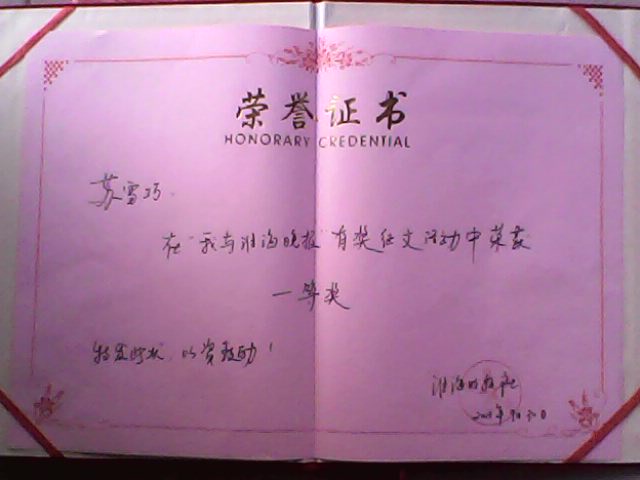 荣誉证书
HONORARY CREDENTIAL
苏雪巧
在“我与淮海晚报”有奖征文活动中荣获
一等奖
特发此状，以资鼓励！
淮海晚报社